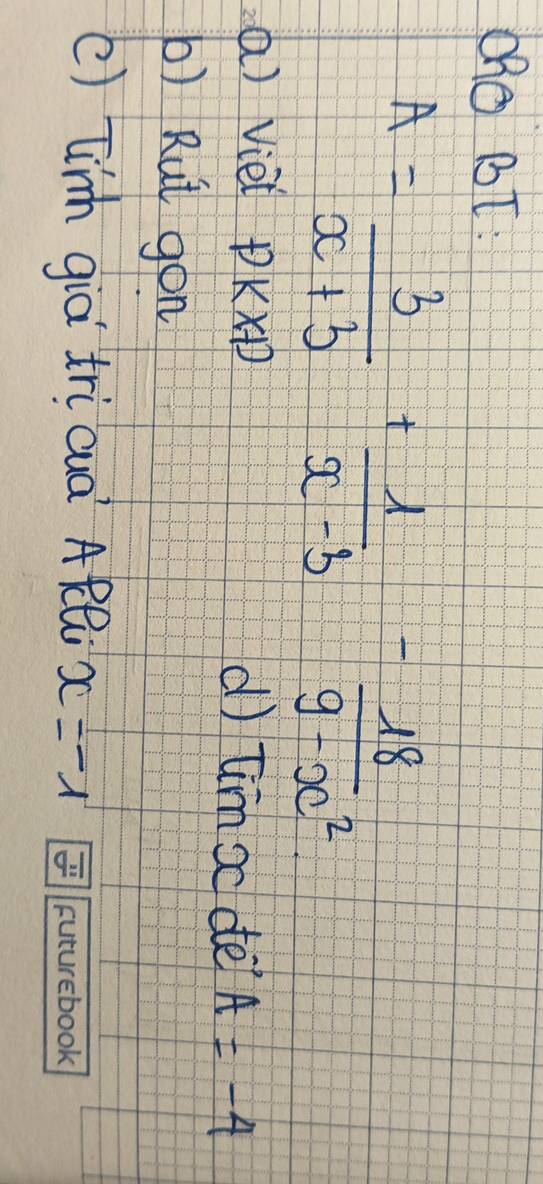 Cho BT:
A = 3/(x + 3) + 1/(x - 3) - 18/(9 - x²).
a) Viết ĐKXĐ
d) Tìm x để A = -4
b) Rút gọn
c) Tính giá trị của A khi x = -1
futurebook